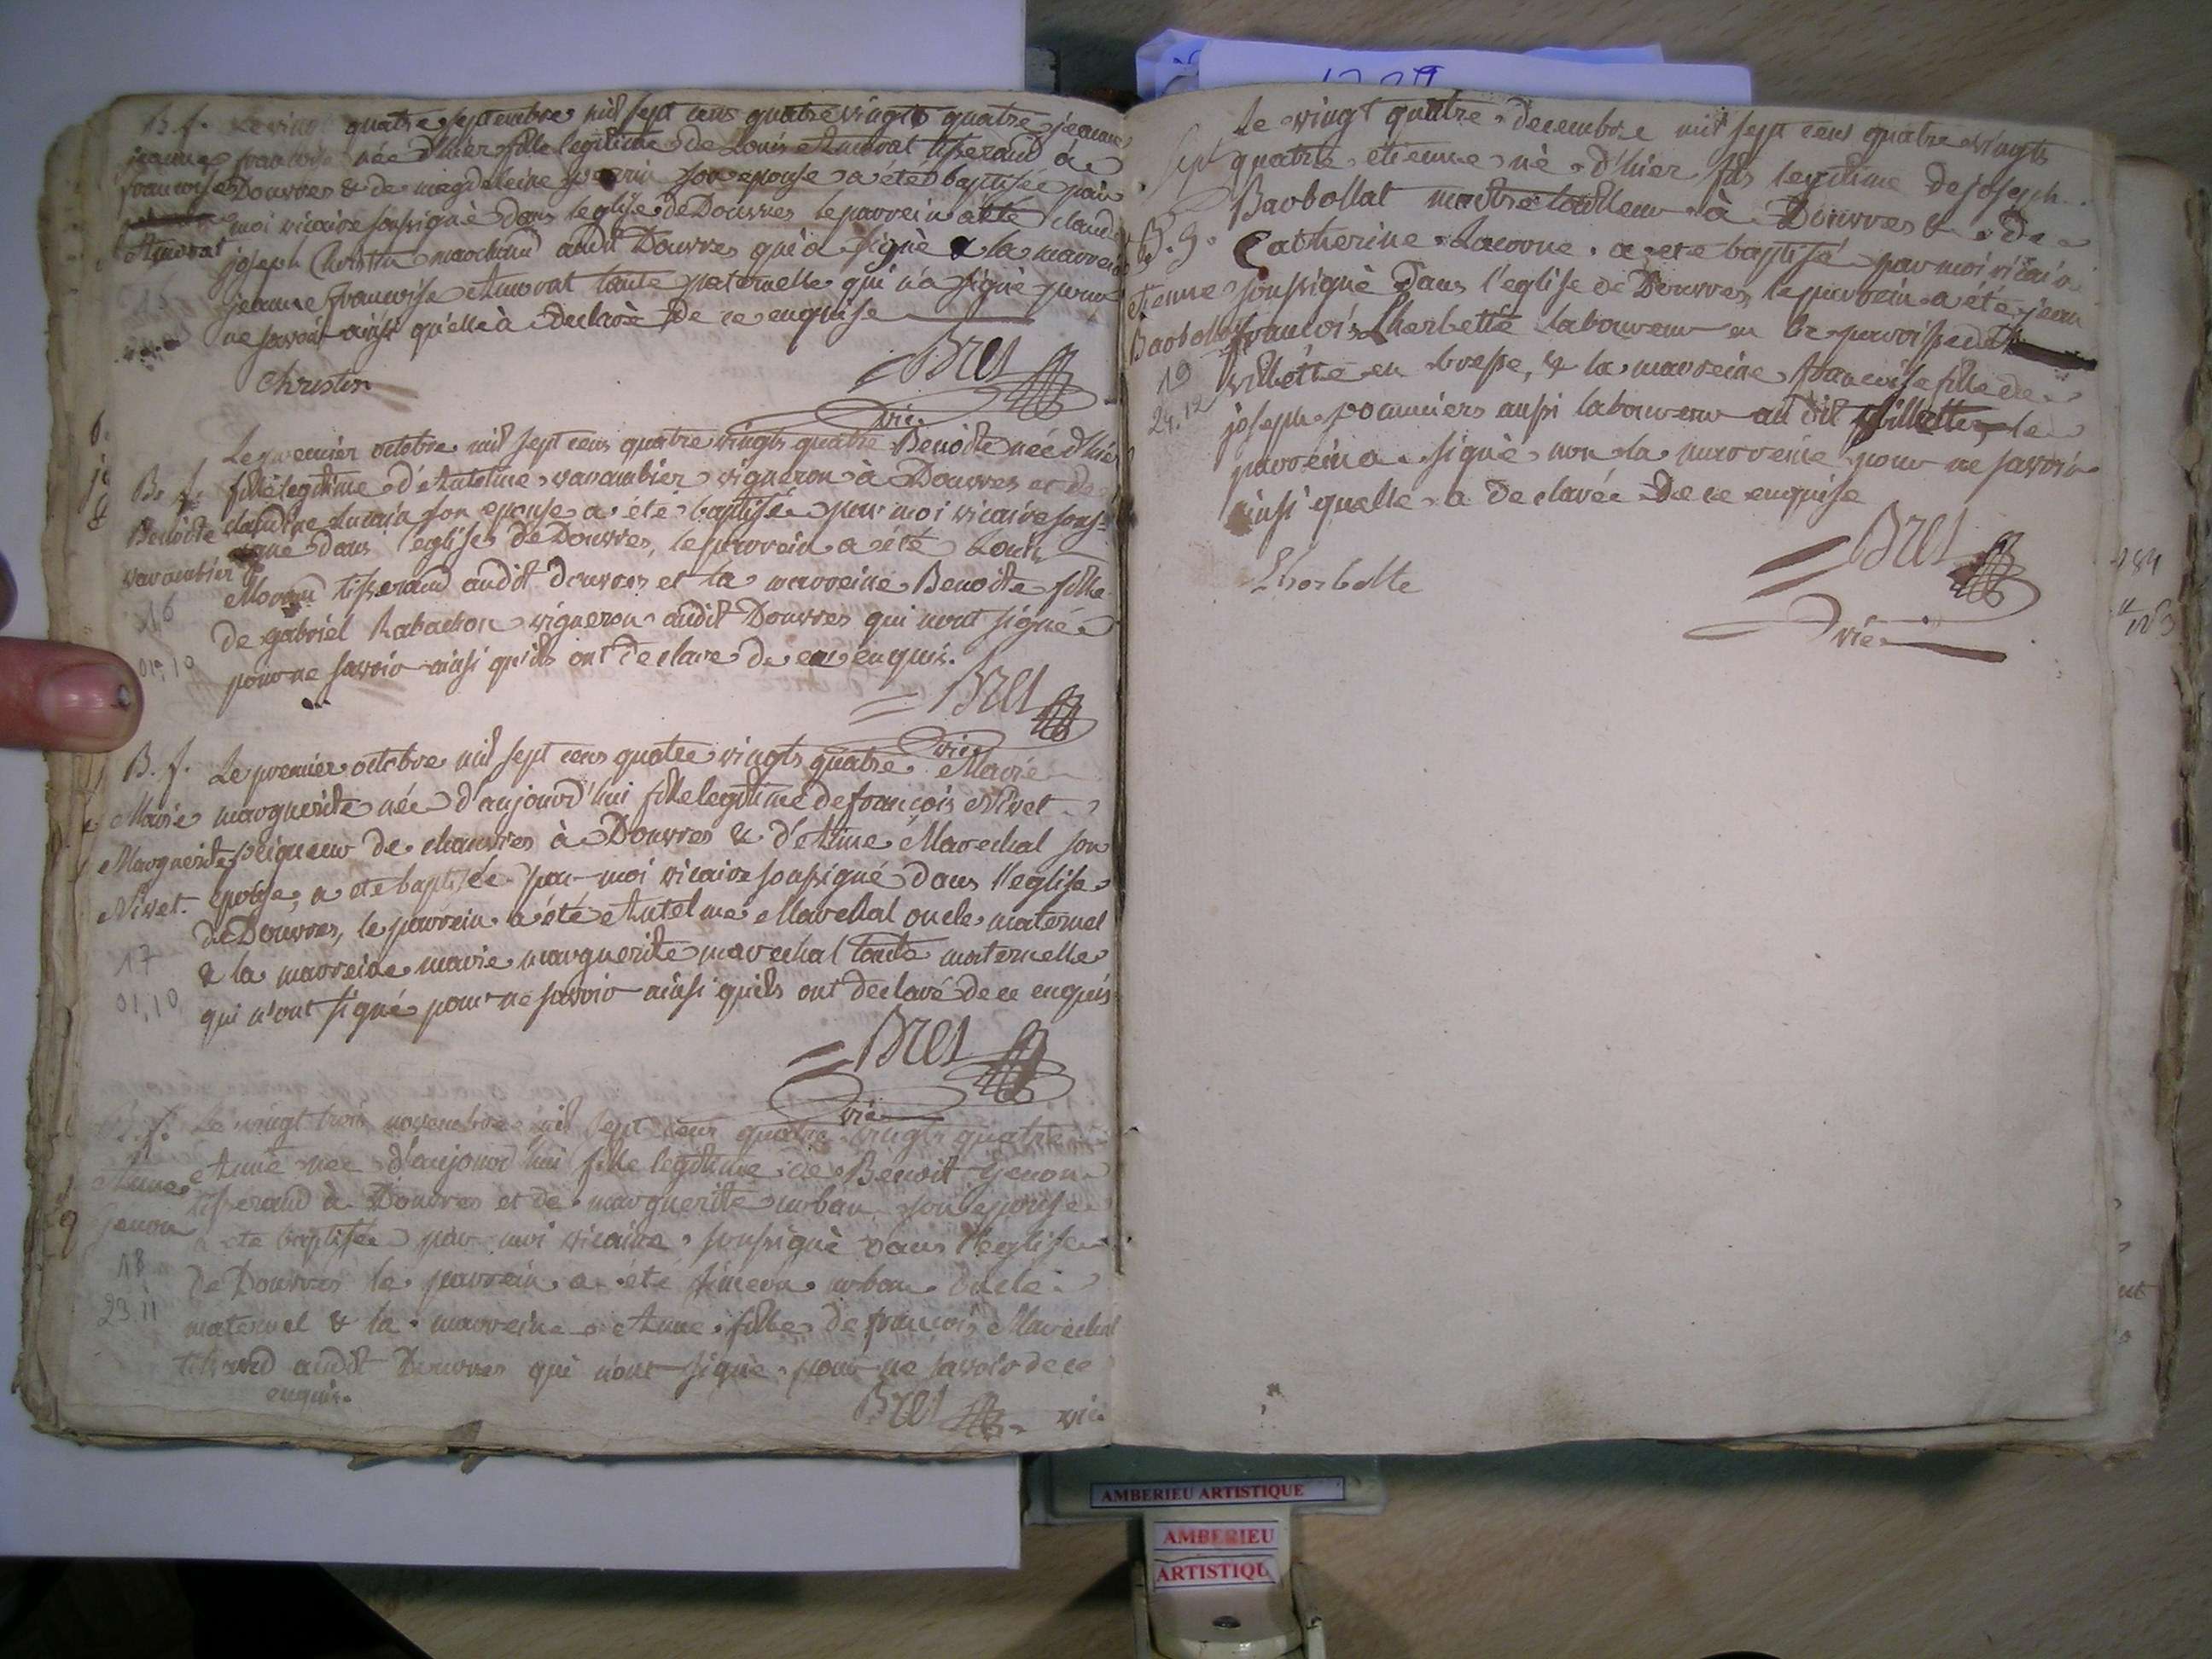 B. f. Le vingt quatre septembre mil sept cens quatre vingts quatre jeanne
jeanne francoise née d'hier fille legitime de Louis Amorat tisserand à
francoise Douvres & de magdeleine son epouse a été baptisée par
moi vicaire soussigné dans leglise de Douvres le parrein a été claude
Amorat joseph Christin marchand audit Douvres qui a signè & la marreine
jeanne francoise Amorat tante paternelle qui n'a signè pour
ne savoir ainsi qu'elle à declaré de ce enquise
Christin
Bret
vic.
Le premier octobre mil sept cens quatre vingts quatre Benoite née d'hier
B. f. fille legitime d'Antelme varambier vigneron à Douvres et de
Benoite claudine son epouse a été baptisée par moi vicaire sous-
signé dans l'eglise de Douvres, le parrein a été Louis
varambier
tisserand audit douvres et la marreine Benoite fille
16
de gabriel Rabachon vigneron audit Douvres qui n'ont signé
01.10
pour ne savoir ainsi qu'ils ont declare de ce enquis.
Bret
vic.
B. f. Le premier octobre mil sept cens quatre vingts quatre Marie
Marie marguerite née d'aujourd'hui fille legitime de françois Nivet
Marguerite peigneur de chanvres à Douvres & d'Aime Marechal son
Nivet. epouse, a ete baptisée par moi vicaire soussigné dans l'eglise
de Douvres, le parrein a été Antelme Marechal oncle maternel
17
& la marreine marie marguerite marechal tante maternelle
01.10
qui n'ont signé pour ne savoir ainsi quils ont declaré de ce enquis
Bret
vic.
B. f. Le vingt trois novembre mil sept cens quatre vingts quatre
Anne née d'aujourd'hui fille legitime de Benoit genon
Anne tisserand à Douvres et de marguerite urban son epouse
genon a ete baptisée par moi vicaire soussignè dans l'eglise
18
de Douvres le parrein a été simeon urban oncle
23.11
maternel & la marreine Anne fille de françois Marechal
tisserand audit Douvres qui n'ont signè pour ne savoir de ce
enquis.
Bret vic.
Le vingt quatre decembre mil sept cens quatre vingts
sept quatre etienne nè d'hier fils legitime de joseph
Barbollat maitre tailleur à Douvres & de
B. g. Catherine Lacorne a ete baptisé par moi vicaire
etienne soussignè dans l'eglise de Douvres, le parrein a été jean
Barbollat francois Lherbette laboureur en la paroisse de
19
villette en bresse, & la marreine francoise fille de
24.12
joseph pommiers aussi laboureur au dit villette, le
parrein a signè non la marreine pour ne savoir
ainsi quelle a declarée de ce enquise
Lherbette
Bret
vic.
AMBERIEU ARTISTIQUE
AMBERIEU
ARTISTIQU